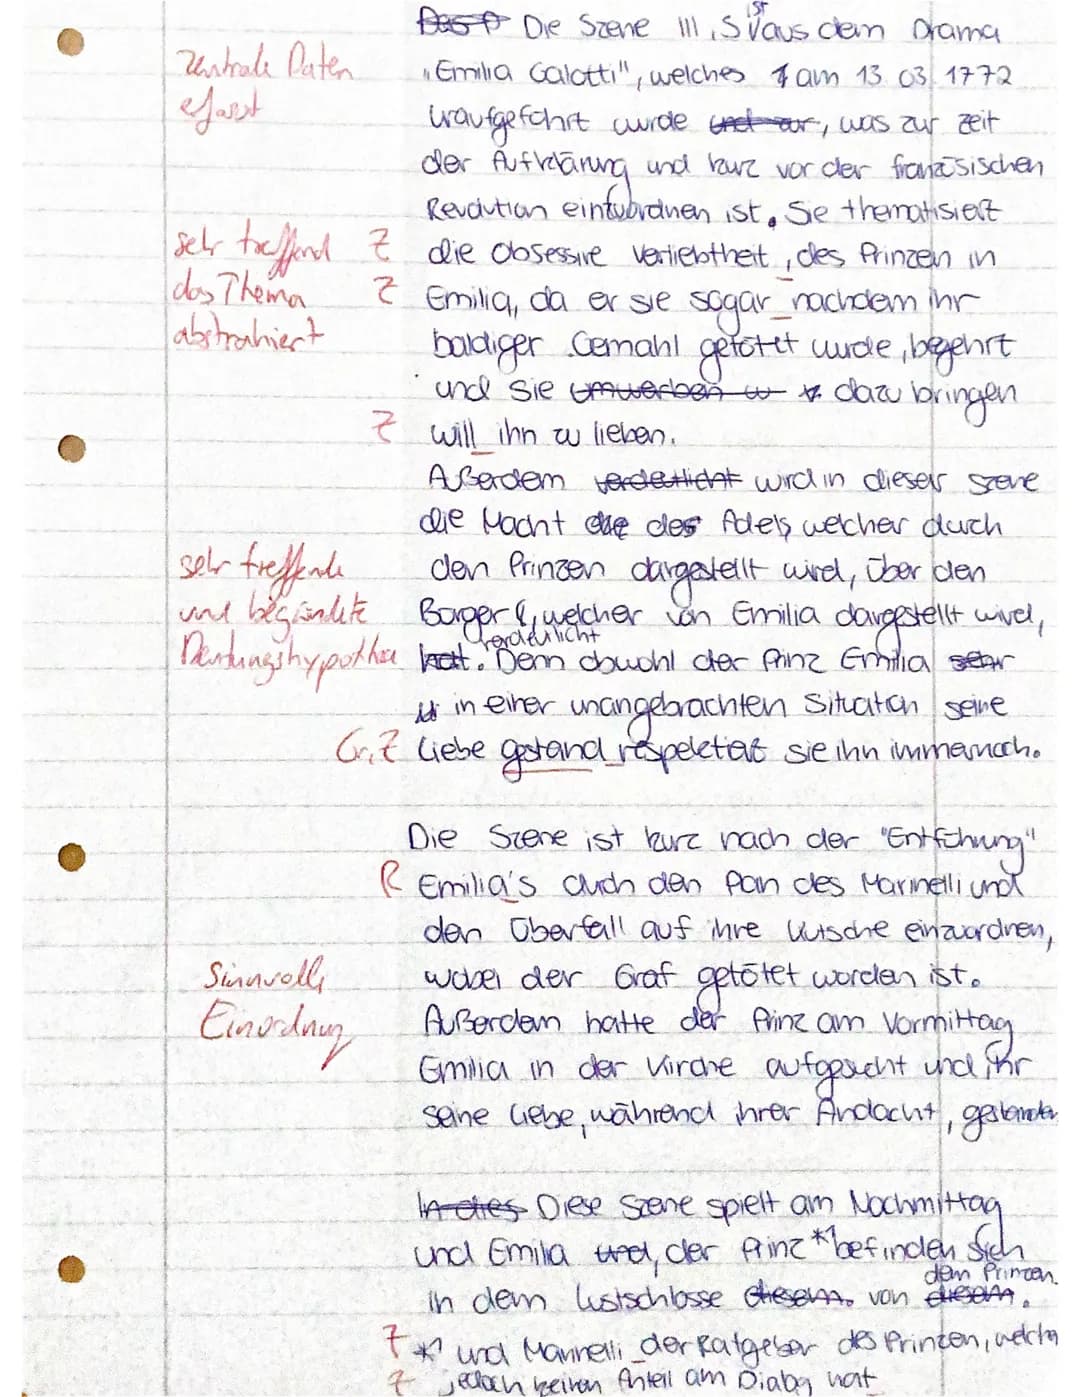 Die Szene III, 5 ist aus dem Drama
Zentrale Daten
„Emilia Galotti", welches am 13.03.1772
erfasst
uraufgeführt wurde und zur, was zur Zeit
der Aufklärung und kurz vor der französischen
Revolution einzuordnen ist. Sie thematisiert
sehr treffend Z
die obsessive Verliebtheit, des Prinzen in
das Thema Z
Emilia, da er sie sogar nachdem ihr
abstrahiert
baldiger Gemahl getötet wurde, begehrt
und sie umwerben dazu bringen
Z will ihn zu lieben.
Außerdem verdeutlicht wird in dieser Szene
die Macht die des Adels welcher durch
sehr treffende
den Prinzen dargestellt wird, über den
und begründete
Bürger, welcher von Emilia dargestellt wird,
verdeutlicht
Deutungshypothese
hat. Denn obwohl der Prinz Emilia sehr
in einer unangebrachten Situation seine
Gr, Z Liebe gestand respektiert sie ihn immernoch.
Die Szene ist kurz nach der "Entführung"
R Emilia's durch den Plan des Marinelli und
den Überfall auf ihre Kutsche einzuordnen,
Sinnvolle
wobei der Graf getötet worden ist.
Einordnung
Außerdem hatte der Prinz am Vormittag
Emilia in der Kirche aufgesucht und ihr
seine Liebe, während ihrer Andacht, gestanden
In dies Diese Szene spielt am Nachmittag
und Emilia und, der Prinz *¹ befinden sich
dem Prinzen.
in dem Lustschlosse diesem. von diesem.
Z *¹ und Marinelli der Ratgeber des Prinzen, welcher
Z jedoch keinen Anteil am Dialog hat